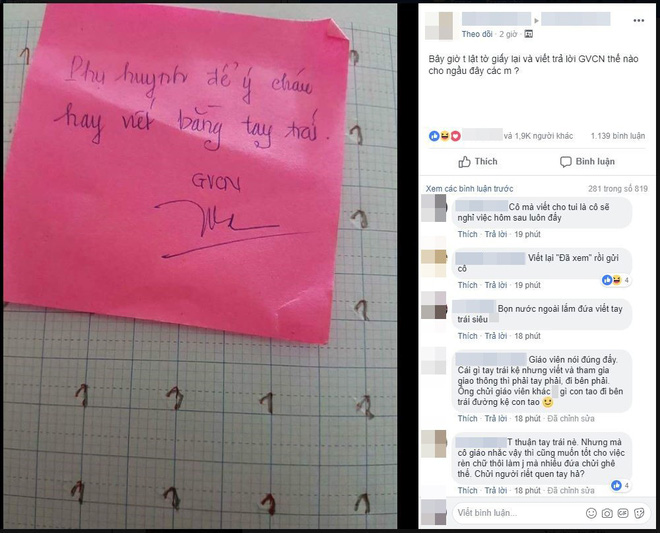 Phụ huynh để ý cháu
hay viết bằng tay trái.
GVCN
Theo dõi · 2 giờ
Bây giờ t lật tờ giấy lại và viết trả lời GVCN thế nào
cho ngầu đây các m ?
và 1,9K người khác 1.139 bình luận
Thích Bình luận
Xem các bình luận trước 281 trong số 819
Cô mà viết cho tui là cô sẽ
nghỉ việc hôm sau luôn đấy
Thích · Trả lời · 19 phút
Viết lại "Đã xem" rồi gửi
cô
4
Thích · Trả lời · 19 phút
Bọn nước ngoài lắm đứa viết tay
trái siêu
Thích · Trả lời · 18 phút
Giáo viên nói đúng đấy.
Cái gì tay trái kệ nhưng viết và tham gia
giao thông thì phải tay phải, đi bên phải.
Ông chửi giáo viên khác gì con tao đi bên
trái đường kệ con tao
Thích · Trả lời · 18 phút · Đã chỉnh sửa
T thuận tay trái nè. Nhưng mà
cô giáo nhắc vậy thì cũng muốn tốt cho việc
rèn chữ thôi làm j mà nhiều đứa chửi ghê
thế. Chửi người riết quen tay hả?
4
Thích · Trả lời · 18 phút · Đã chỉnh sửa
Viết bình luận...
GIF
1
1
1
1
1 1 1 1
1 1 1 1